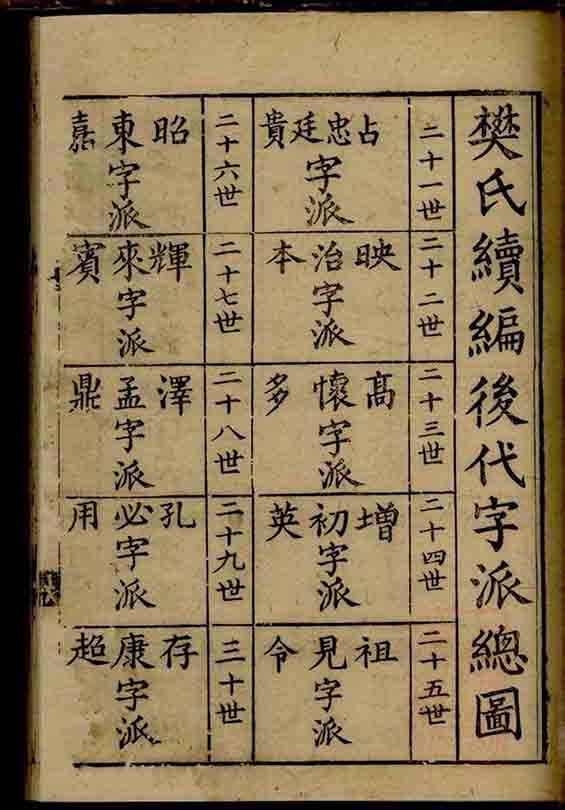 樊氏續編後代字派總圖
二十一世
占忠廷貴
字派
二十二世
映治本
字派
二十三世
高懷多
字派
二十四世
增初英
字派
二十五世
祖見令
字派
二十六世
昭東嘉
字派
二十七世
輝來賓
字派
二十八世
澤孟鼎
字派
二十九世
孔必用
字派
三十世
存康超
字派